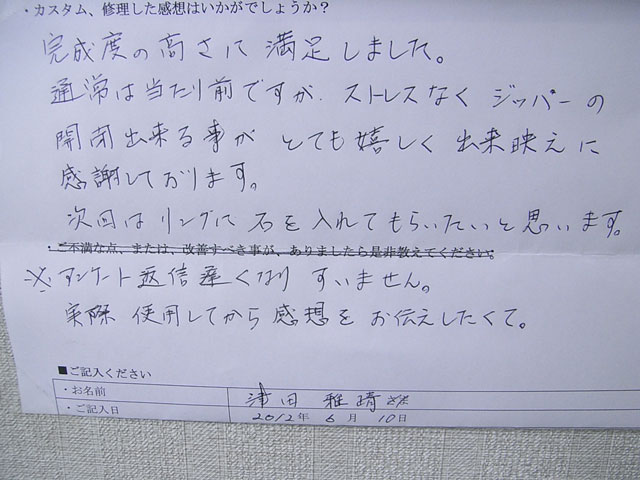 ・カスタム、修理した感想はいかがでしょうか？
完成度の高さに満足しました。
通常は当たり前ですが、ストレスなくジッパーの
開閉出来る事がとても嬉しく出来映えに
感謝しております。
次回はリングに石を入れてもらいたいと思います。
・ご不満な点、または、改善すべき事が、ありましたら是非教えてください。
※アンケート返信遅くなりすいません。
実際使用してから感想をお伝えしたくて。
■ご記入ください
・お名前 津田 雅晴
・ご記入日 2012年 6月 10日